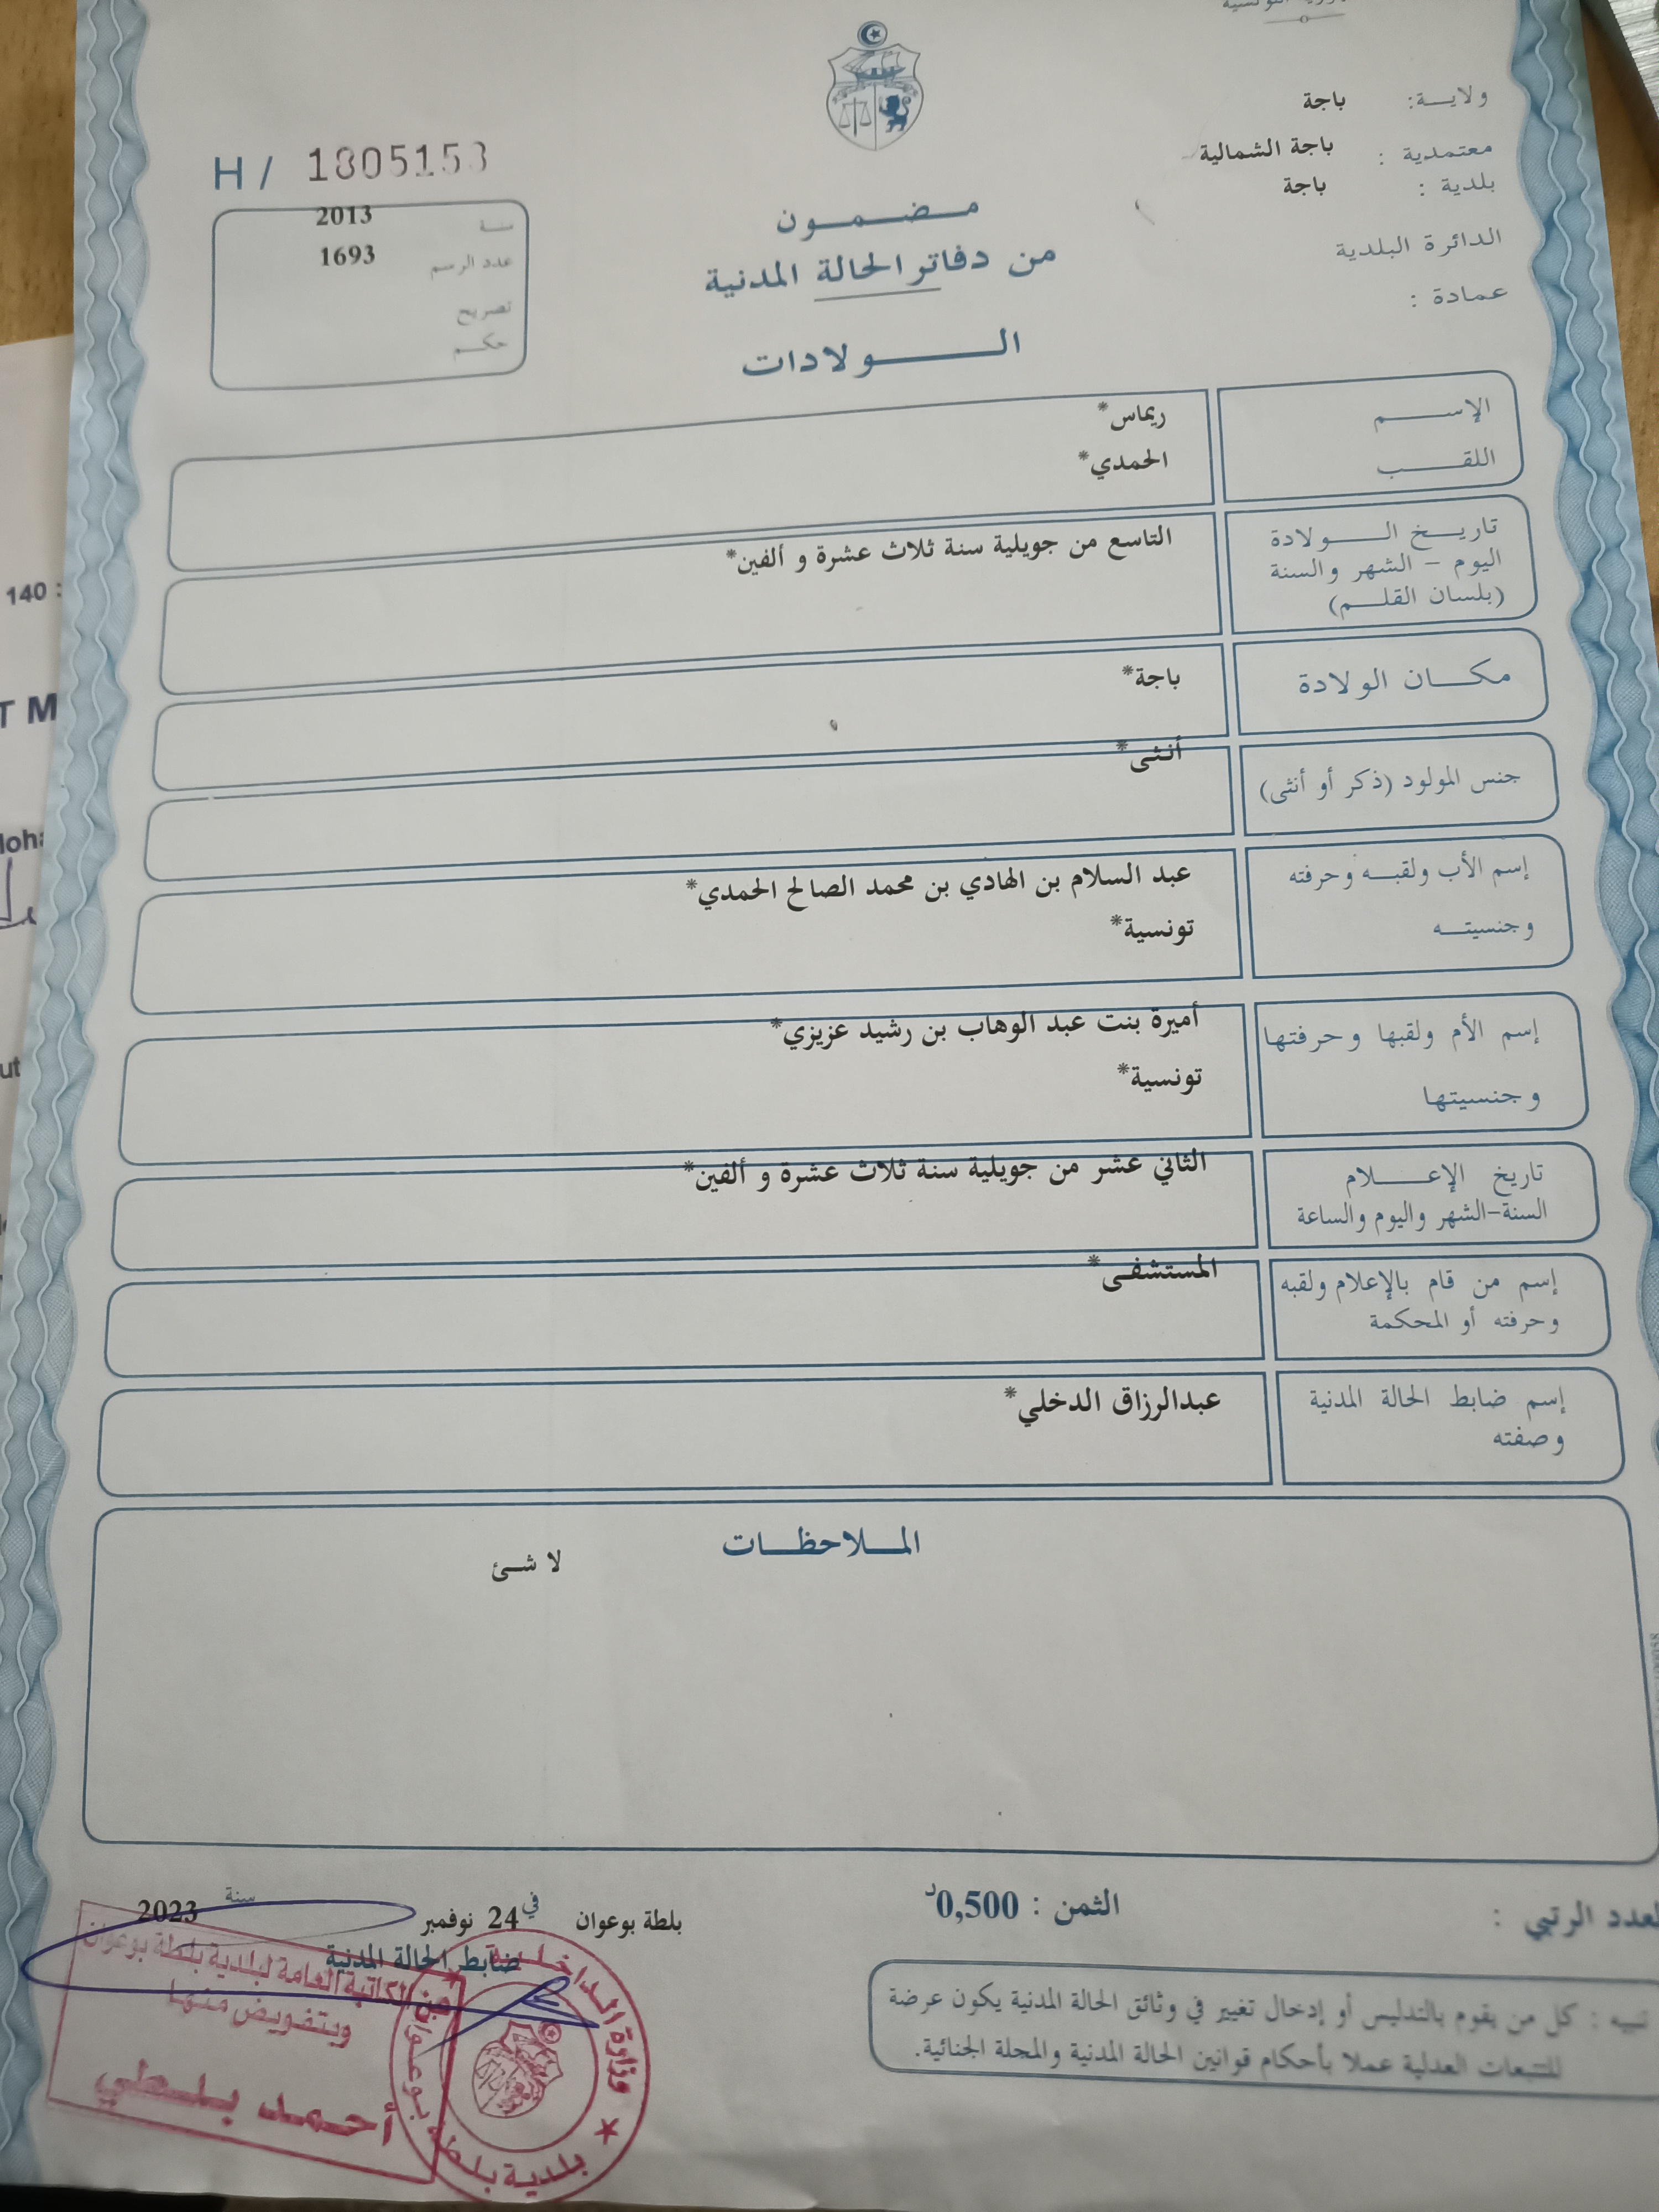 ولايـــة: باجة
معتمدية : باجة الشمالية
بلدية : باجة
الدائرة البلدية
عمادة :
H / 1805153
سنة 2013
عدد الرسم 1693
تصريح
حكم
مضمون
من دفاتر الحالة المدنية
الولادات
الإسم ريماس*
اللقب الحمدي*
تاريخ الولادة التاسع من جويلية سنة ثلاث عشرة و ألفين*
اليوم - الشهر والسنة
(بلسان القلم)
مكان الولادة باجة*
جنس المولود (ذكر أو أنثى) أنثى*
إسم الأب ولقبه وحرفته عبد السلام بن الهادي بن محمد الصالح الحمدي*
وجنسيته تونسية*
إسم الأم ولقبها وحرفتها أميرة بنت عبد الوهاب بن رشيد عزيزي*
وجنسيتها تونسية*
تاريخ الإعلام الثاني عشر من جويلية سنة ثلاث عشرة و ألفين*
السنة-الشهر واليوم والساعة
إسم من قام بالإعلام ولقبه المستشفى*
وحرفته أو المحكمة
إسم ضابط الحالة المدنية عبدالرزاق الدخلي*
وصفته
الملاحظات
لا شئ
العدد الرتبي :
الثمن : 0,500د
بلطة بوعوان في 24 نوفمبر سنة 2023
ضابط الحالة المدنية
تنبيه : كل من يقوم بالتدليس أو إدخال تغيير في وثائق الحالة المدنية يكون عرضة
للتتبعات العدلية عملا بأحكام قوانين الحالة المدنية والمجلة الجنائية.
عن الكاتبة العامة لبلدية بلطة بوعوان
وبتفويض منها
أحمد بلطي
وزارة الداخلية
بلدية بلطة بوعوان
140 :
T M
ut